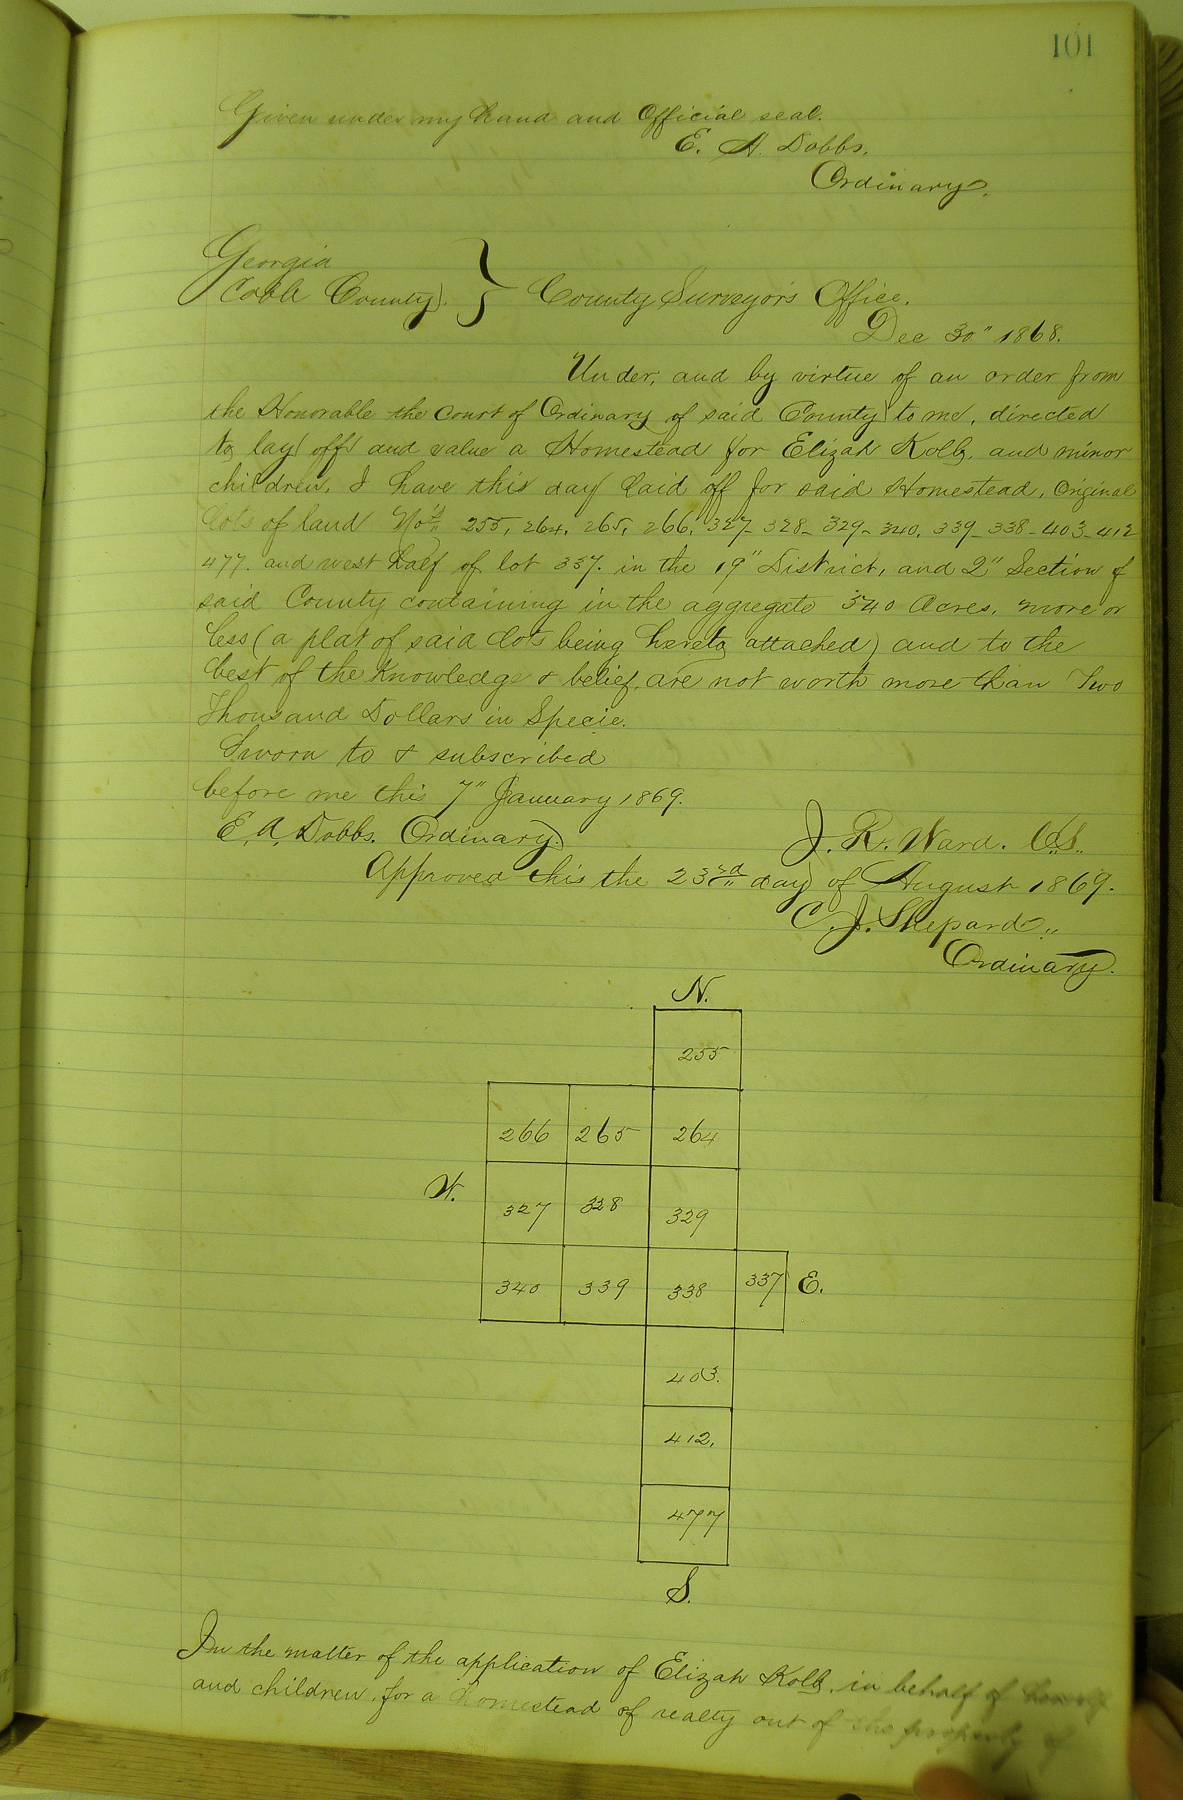 101
Given under my hand and Official seal.
E. A. Dobbs.
Ordinary.
Georgia
Cobb County. } County Surveyors Office.
Dec 30" 1868.
Under, and by virtue of an order from
the Honorable the Court of Ordinary of said County to me, directed
to lay off and value a Homestead for Elizah Kolb, and minor
children, I have this day laid off for said Homestead, Original
Lots of land Nos 255, 264, 265, 266, 327- 328- 329- 340, 339- 338- 403- 412
477. and west half of lot 337. in the 19" District, and 2" Section of
said County containing in the aggregate 540 Acres, more or
less (a plat of said lots being hereto attached) and to the
best of the knowledge & belief, are not worth more than Two
Thousand Dollars in Specie.
Sworn to & subscribed
before me this 7" January 1869.
E. A. Dobbs. Ordinary. J. R. Ward. C.S.
Approved this the 23rd day of August 1869.
C. J. Shepard
Ordinary.
N.
255
266 265 264
W.
327 328 329
340 339 338 337 E.
403.
412.
477
S.
In the matter of the application of Elizah Kolb, in behalf of
and children, for a homestead of realty out of the property of